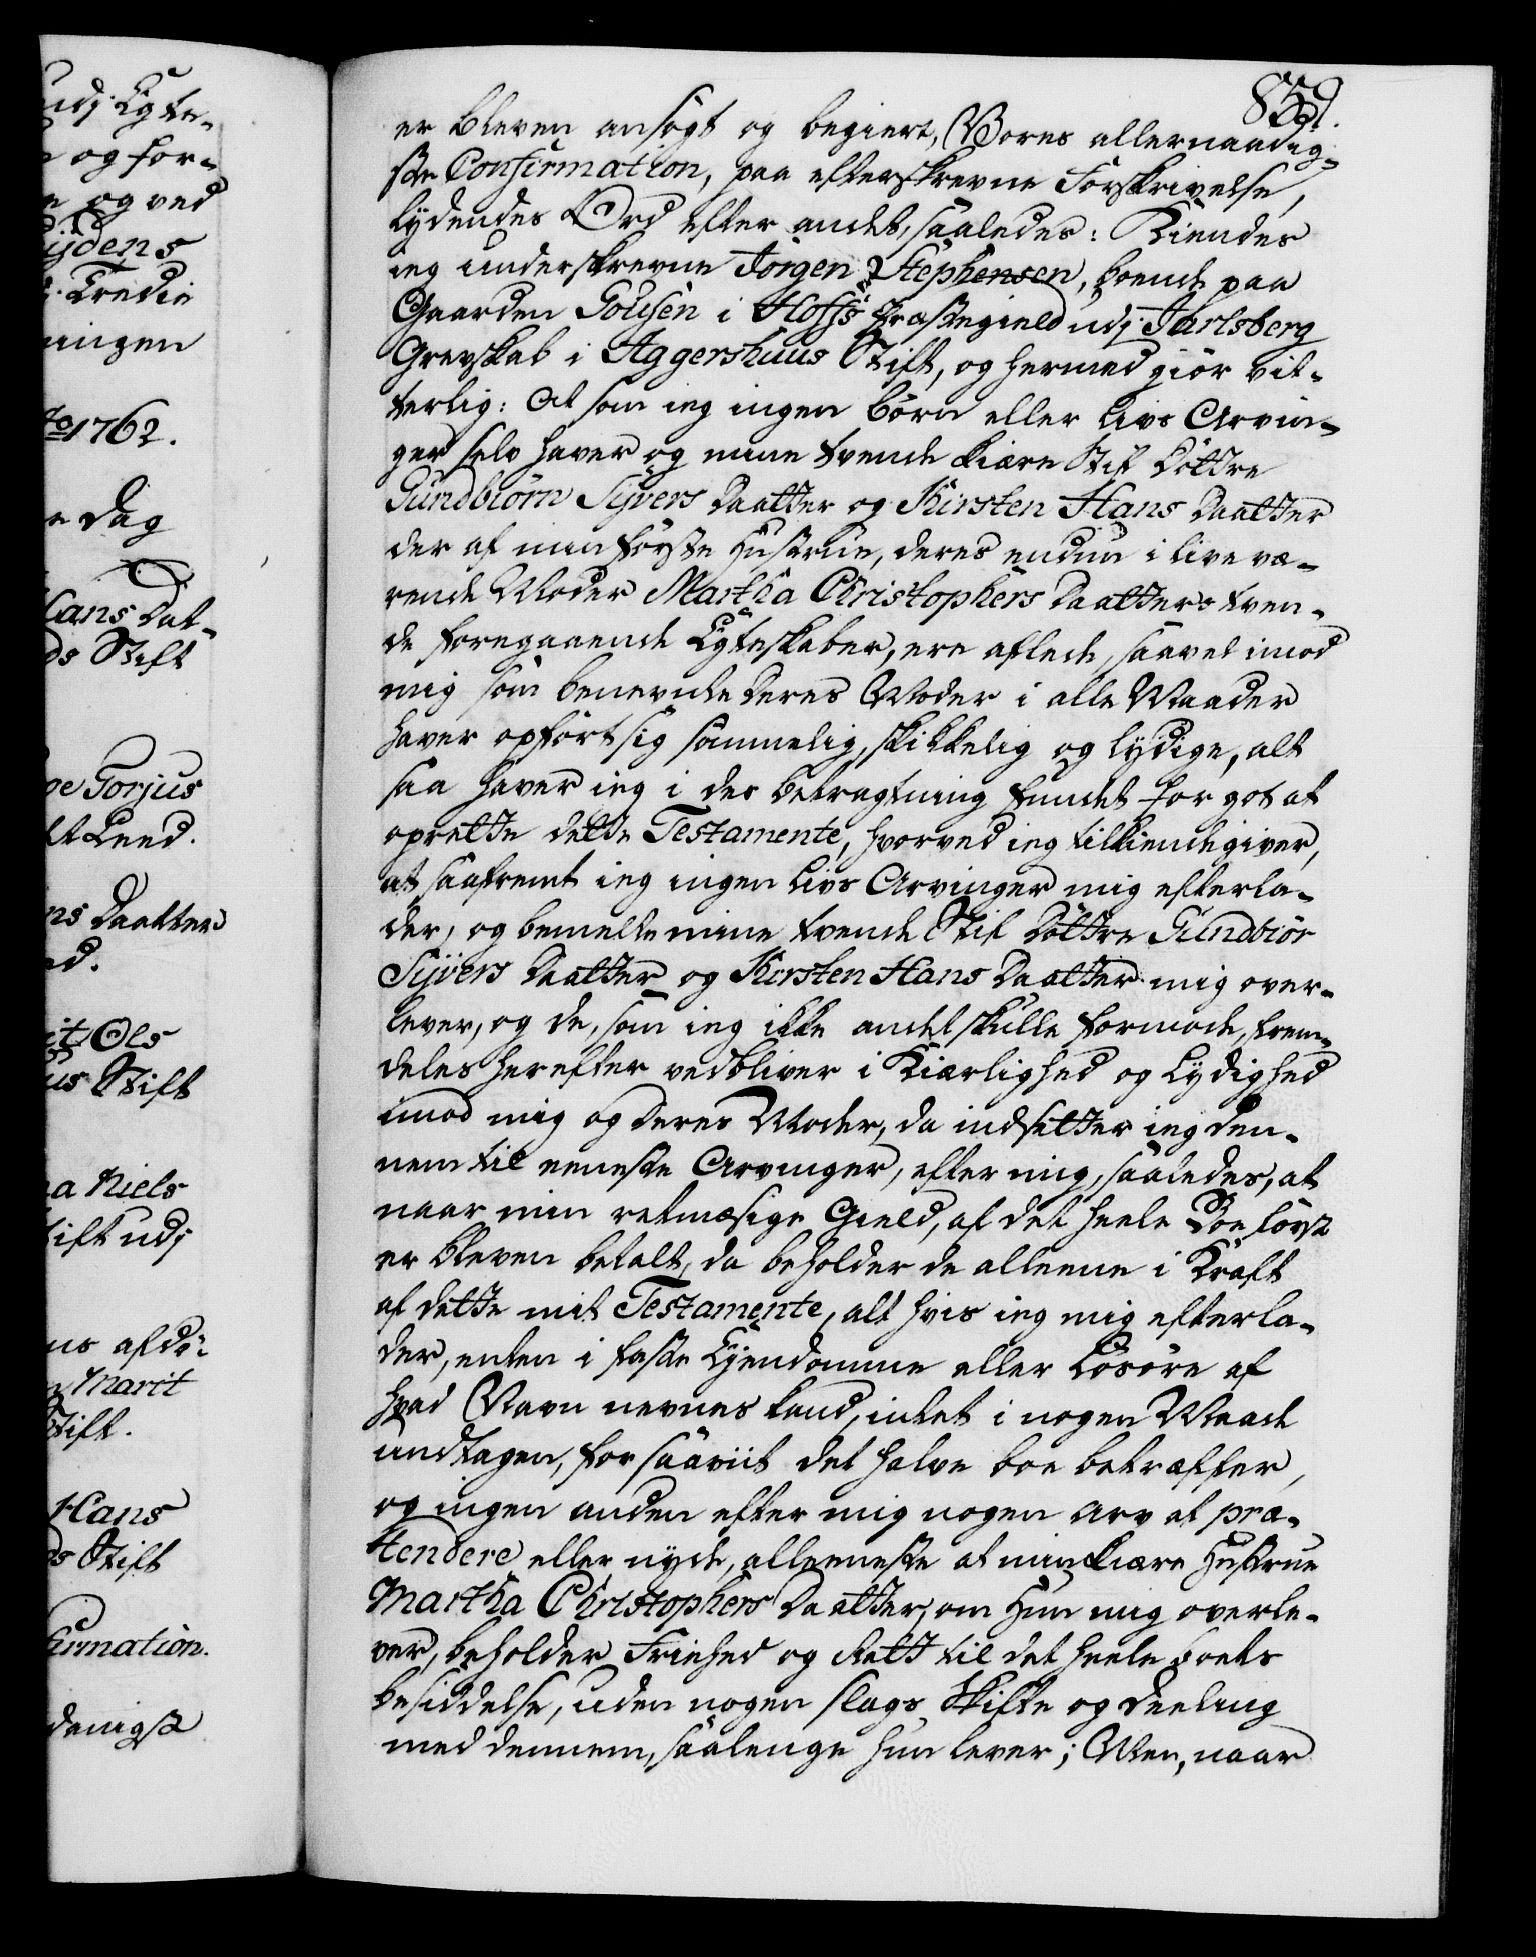 udj Egte-
og for-
e og ved
ijdens
Tredie
ningen
to 1762.
e Dag
Hans Dat-
ds Stift
pe Torjus
lt Lend.
ns Daatter
ed.
it Ols
us Stift
a Niels
tift udj
us afdö-
Marit
Stift.
Hans
ds Stift
firmation.
danigst
859.
er bleven ansögt og begiert, Vores allernaadig-
ste Confirmation, paa efterskrevne Forskrivelse,
lydendes Ord efter andet, saaledes: Kiendes
ieg underskrevne Jörgen Stephensen, boende paa
Gaarden Solisen i Hoffs Præstegield udj Jarlsberg
Grevskab i Aggershuus Stift, og hermed giör vit-
terlig: At som ieg ingen börn eller Livs Arvin-
ger selv haver og mine tvende kiære Stif Döttre
Gundbiörn Sijvers Daatter og Kirsten Hans Daatter
der af min förste Hustrue, deres endnu i live væ-
rende Moder Martha Christophers Daatters tven-
de foregaaende Egteskaber, ere aflede, saavel imod
mig som benevnte deres Moder i alle Maader
haver opfört sig sömmelig, skikkelig og lydige, alt
saa haver ieg i des betragtning fundet for got at
oprette dette Testamente, hvorved ieg tilkiendegiver,
at saafremt ieg ingen Livs Arvinger mig efterla-
der, og bemelte mine tvende Stif Döttre Gundbiör
Sijvers Daatter og Kirsten Hans Daatter mig over-
lever, og de, som ieg ikke andet skulle formode, frem-
deles herefter vedbliver i Kiærlighed og Lydighed
imod mig og deres Moder, da indsetter ieg den-
nem til eeneste Arvinger, efter mig, saaledes, at
naar min retmæsige Gield, af det heele Boe först
er bleven betalt, da beholder de alleene i Kraft
af dette mit Testamente, alt hvis ieg mig efterla-
der, enten i faste Eyendomme eller Lösöre af
hvad Navn nevnes kand, intet i nogen Maade
undtagen, for saaviit det halve boe betræffer,
og ingen anden efter mig nogen arv at præ-
tendere eller nyde, alleeneste at min kiære Hustrue
Martha Christophers Daatter, om hun mig overle-
ver, beholder Friehed og Rett til det heele boets
besiddelse, uden nogen slags Skifte og deeling
med dennem, saalenge hun lever; Men, naar